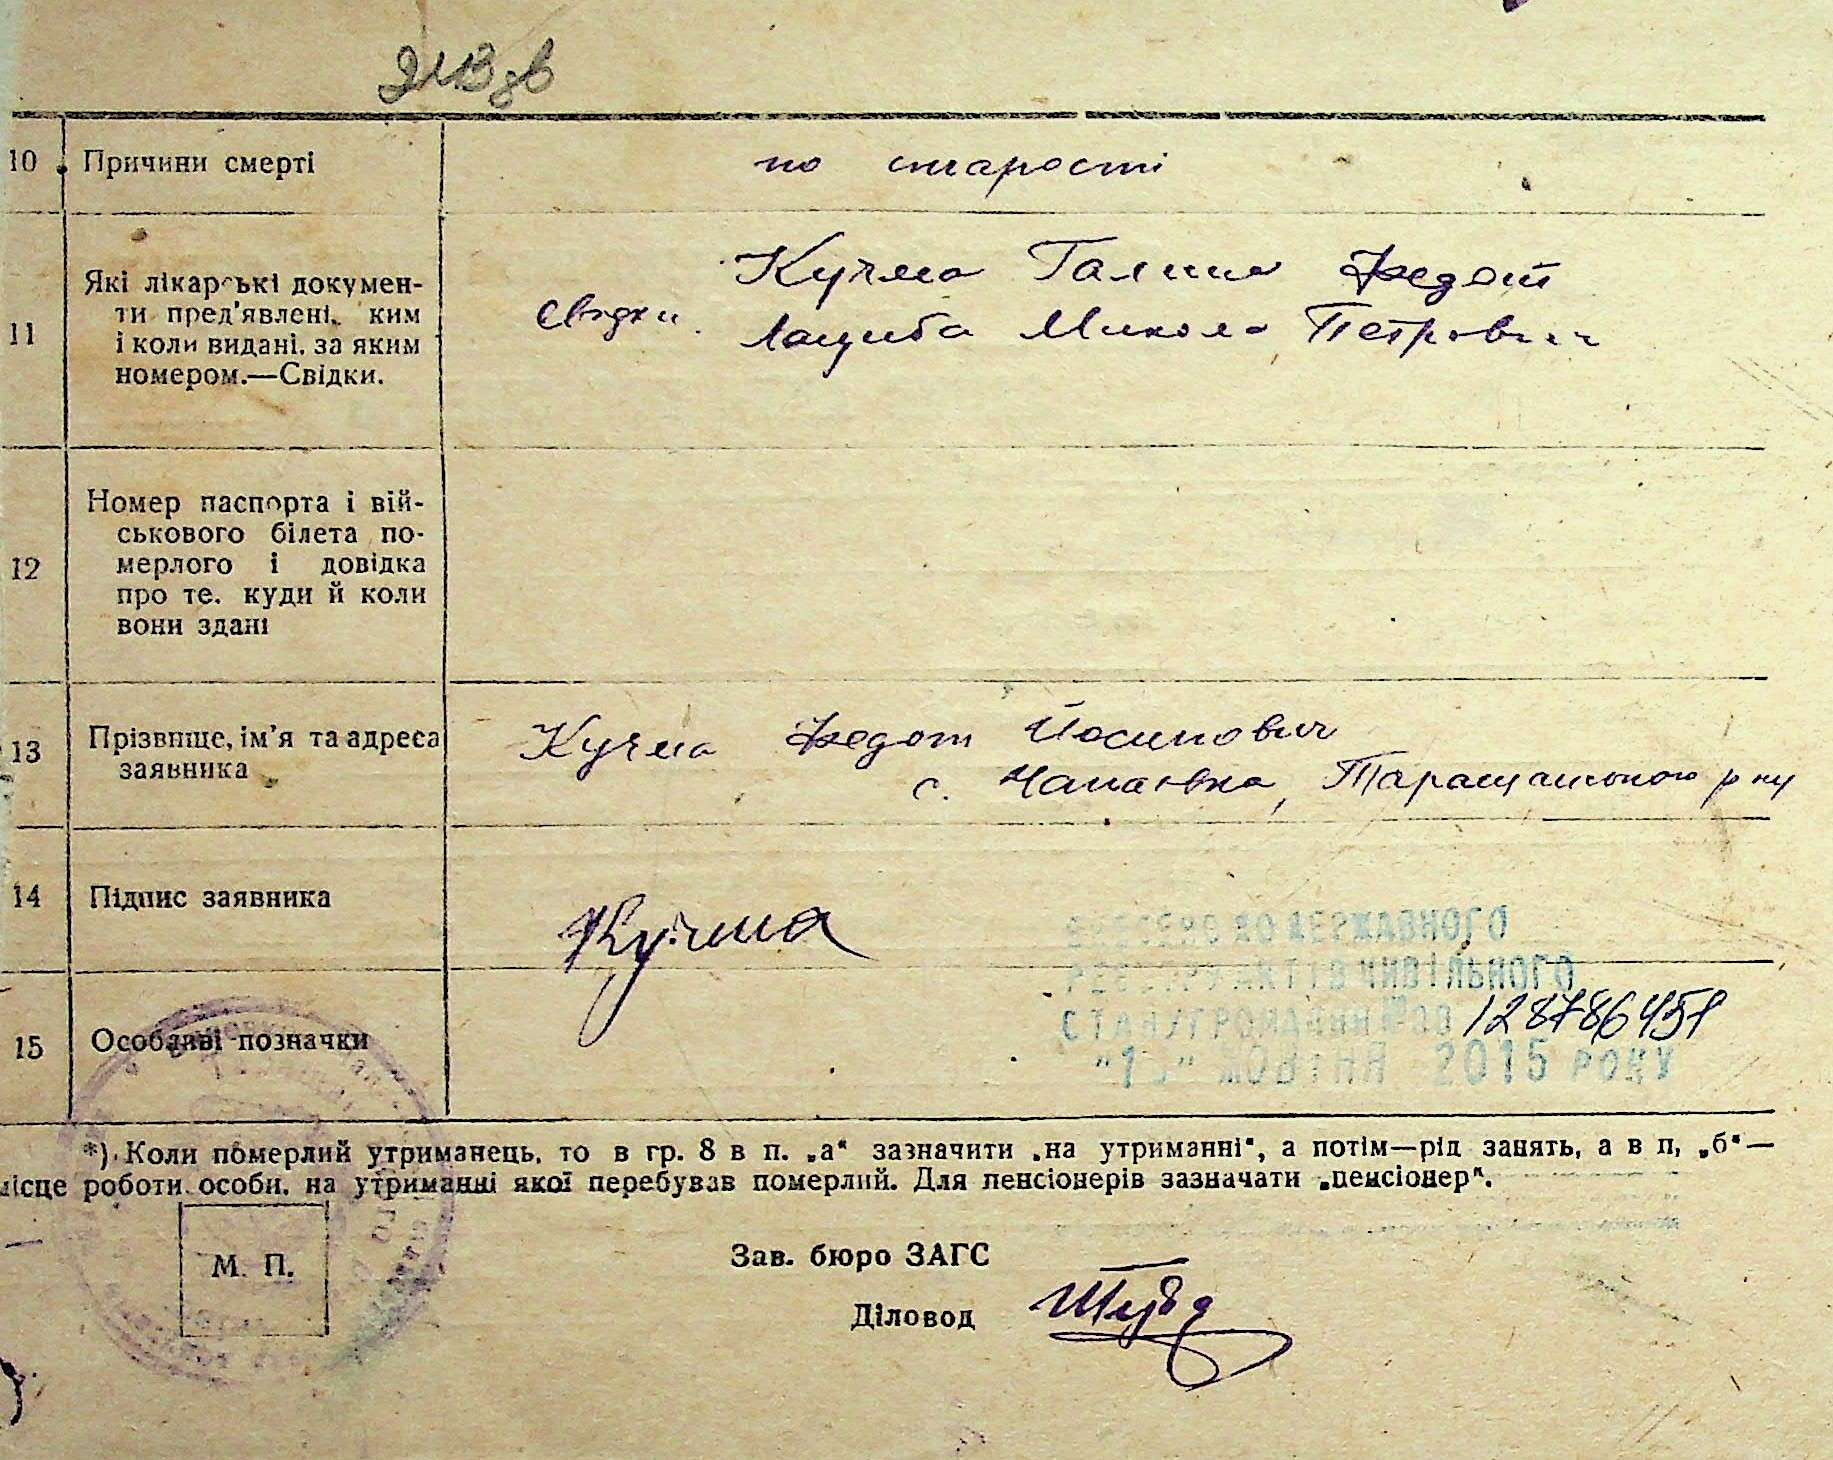 10 Причини смерті по старості
11 Які лікарські докумен-
ти пред'явлені, ким
і коли видані, за яким
номером.—Свідки.
Кучма Галина Федот
Свідки. Микола Петрович
12 Номер паспорта і вій-
ськового білета по-
мерлого і довідка
про те, куди й коли
вони здані
13 Прізвище, ім'я та адреса
заявника
Кучма Федот Йосипович
с. Чапаєвка, Таращанського р-ну
14 Підпис заявника Кучма
ВНЕСЕНО ДО ДЕРЖАВНОГО
РЕЄСТРУ АКТІВ ЦИВІЛЬНОГО
СТАНУ ГРОМАДЯН №00 128786451
15 Особливі позначки
ЖОВТНЯ 2015 РОКУ
*) Коли померлий утриманець, то в гр. 8 в п. „а“ зазначити „на утриманні“, а потім—рід занять, а в п, „б“—
місце роботи особи, на утриманні якої перебував померлий. Для пенсіонерів зазначати „пенсіонер“.
М. П.
Зав. бюро ЗАГС
Діловод